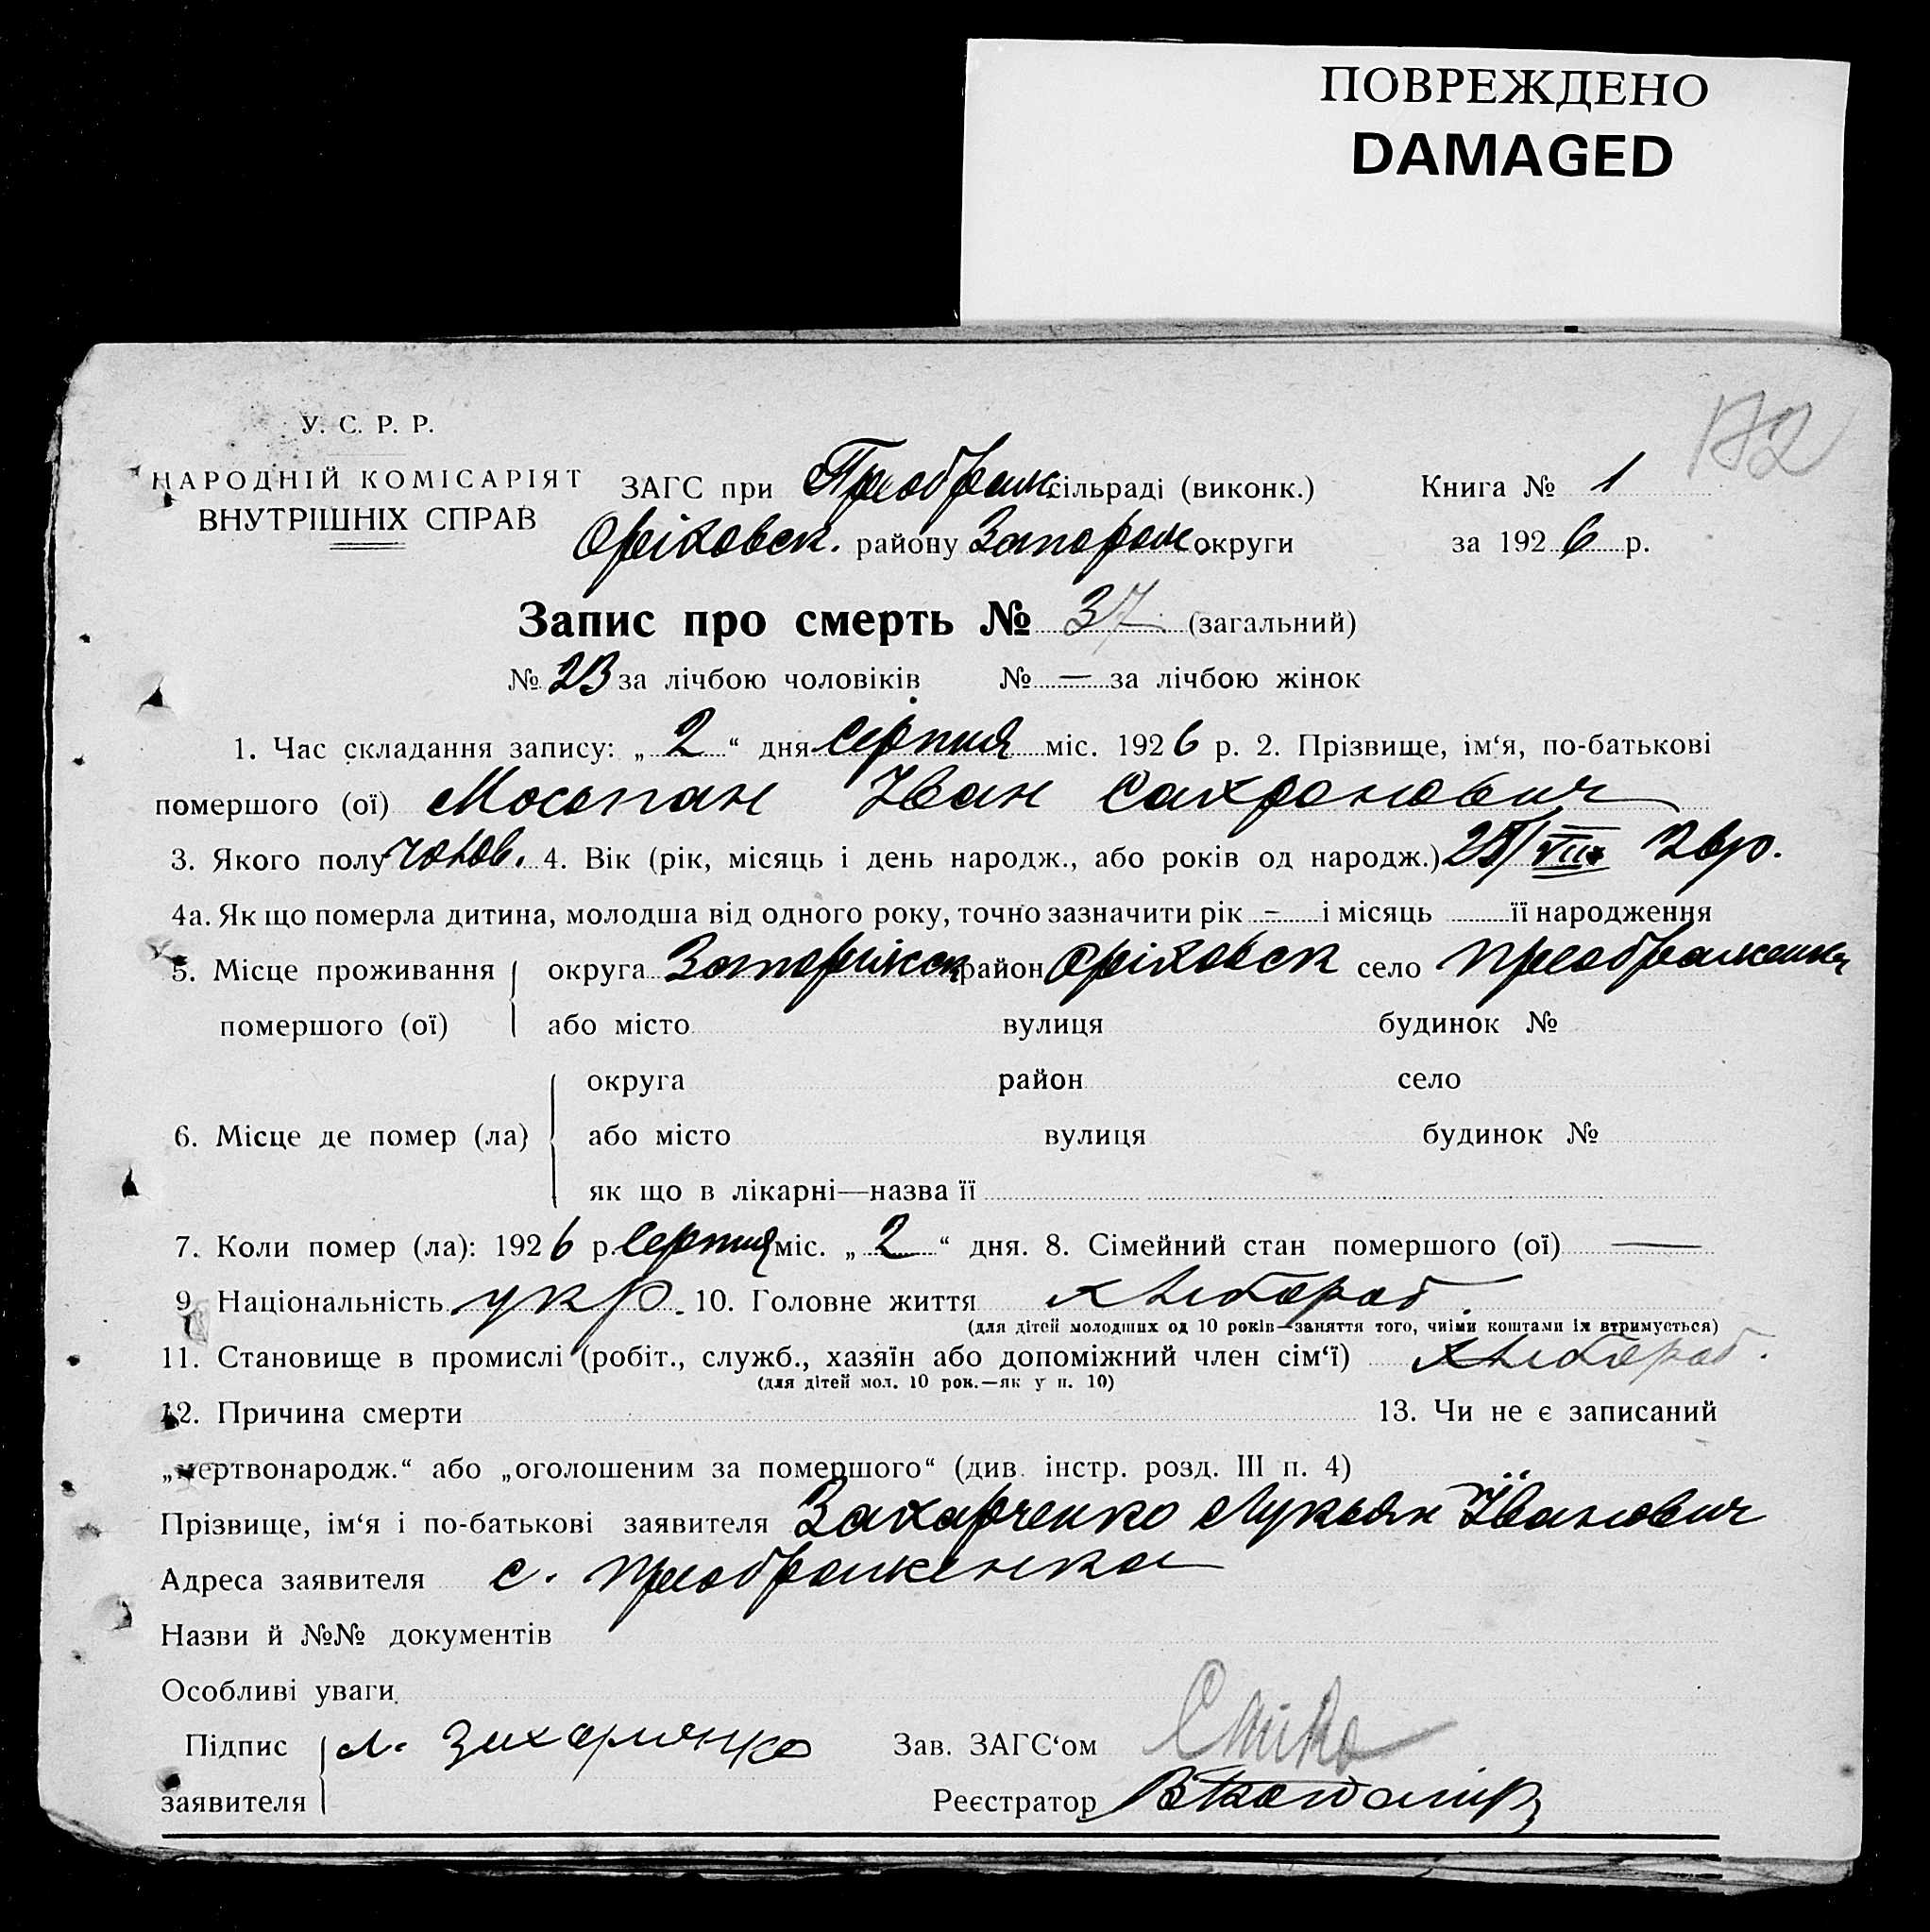 ПОВРЕЖДЕНО
DAMAGED
172
У. С. Р. Р.
НАРОДНІЙ КОМІСАРІЯТ
ВНУТРІШНІХ СПРАВ
ЗАГС при Преображ. сільраді (виконк.) Книга № 1
Оріховск. району Запорож. округи за 1926 р.
Запис про смерть № 37 (загальний)
№ 23 за лічбою чоловіків № — за лічбою жінок
1. Час складання запису: „2“ дня серпня міс. 1926 р. 2. Прізвище, ім‘я, по-батькові
помершого (ої) Мосопан Іван Сахронович
3. Якого полу чолов. 4. Вік (рік, місяць і день народж., або років од народж.) VII 26 р.
4а. Як що померла дитина, молодша від одного року, точно зазначити рік - і місяць її народження
5. Місце проживання округа Запоріжск район Оріховск село Преображенка
помершого (ої) або місто вулиця будинок №
округа район село
6. Місце де помер (ла) або місто вулиця будинок №
як що в лікарні—назва її
7. Коли помер (ла): 1926 р. серпня міс. „2“ дня. 8. Сімейний стан помершого (ої) —
9. Національність укр. 10. Головне життя хлібороб.
(для дітей молодших од 10 років—заняття того, чиїми коштами їх втримується)
11. Становище в промислі (робіт., служб., хазяїн або допоміжний член сім‘ї) хлібороб.
(для дітей мол. 10 рок.—як у п. 10)
12. Причина смерти 13. Чи не є записаний
„мертвонародж.“ або „оголошеним за помершого“ (див. інстр. розд. III п. 4)
Прізвище, ім‘я і по-батькові заявителя Захарченко Лукьян Іванович
Адреса заявителя с. Преображенка
Назви й №№ документів
Особливі уваги
Підпис Л. Захарченко Зав. ЗАГС‘ом
заявителя Реєстратор